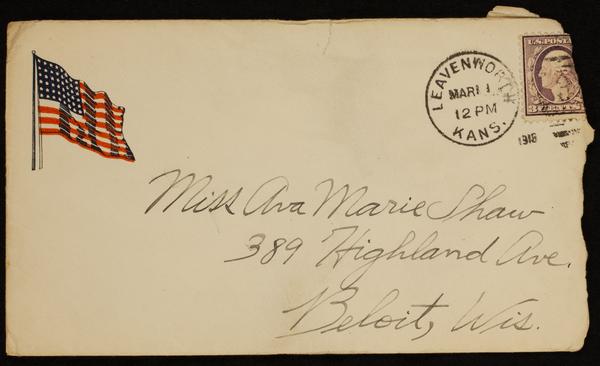 LEAVENWORTH
MAR 11
12 PM
KANS.
1918
U.S. POSTAGE
3 CENTS 3
Miss Ava Marie Shaw
389 Highland Ave.
Beloit, Wis.